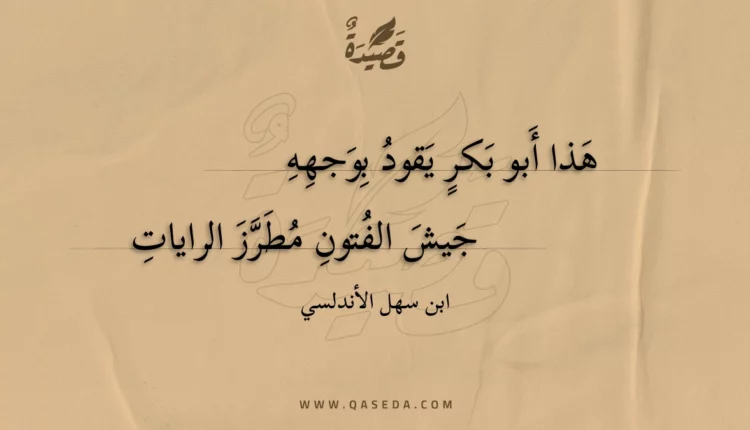 قَصِيْدَةٌ
هَذا أَبو بَكرٍ يَقودُ بِوَجهِهِ
جَيشَ الفُتونِ مُطَرَّزَ الراياتِ
ابن سهل الأندلسي
WWW.QASEDA.COM